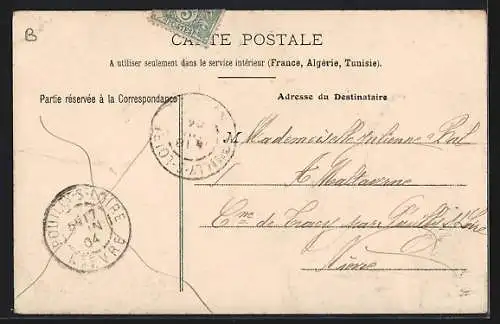 B
5
CARTE POSTALE
A utiliser seulement dans le service intérieur (France, Algérie, Tunisie).
Partie réservée à la Correspondance
Adresse du Destinataire
M Mademoiselle Julienne
A Maltaverne
Cne de Tracy sur
Nièvre
POUILLY-S-LOIRE
17
04
NIÈVRE